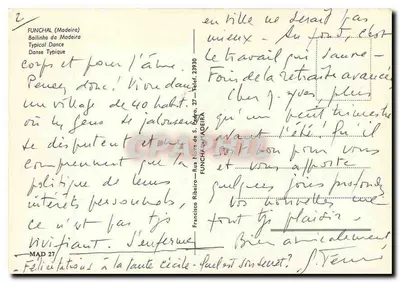 2
FUNCHAL (Madeira)
Bailinho da Madeira
Typical Dance
Danse Typique
corps et pour l'âme.
Pensez donc! Vivre dans
un village de 40 habit.
où les gens se jalousent
se disputent et ne
comprennent que la
politique de leurs
intérêts personnels,
ce n'est pas tjs
vivifiant. S'enferme
MAD 27
Francisco Ribeiro — Rua Nova de S. Pedro, 27 — Telef. 23930
FUNCHAL MADEIRA
en ville ne serait pas
mieux - Au fond, c'est
le travail qui sauve -
Foin de la retraite avancée
Cher J. Yves, plus
qu'un petit trimestre
avant l'été. Qu'il
soit bon pour vous
et vous apporte
quelques joies profondes
Vos nouvelles me
font tjs plaisir.
Bien amicalement,
Félicitations à la tante Cécile - Quel est son secret?